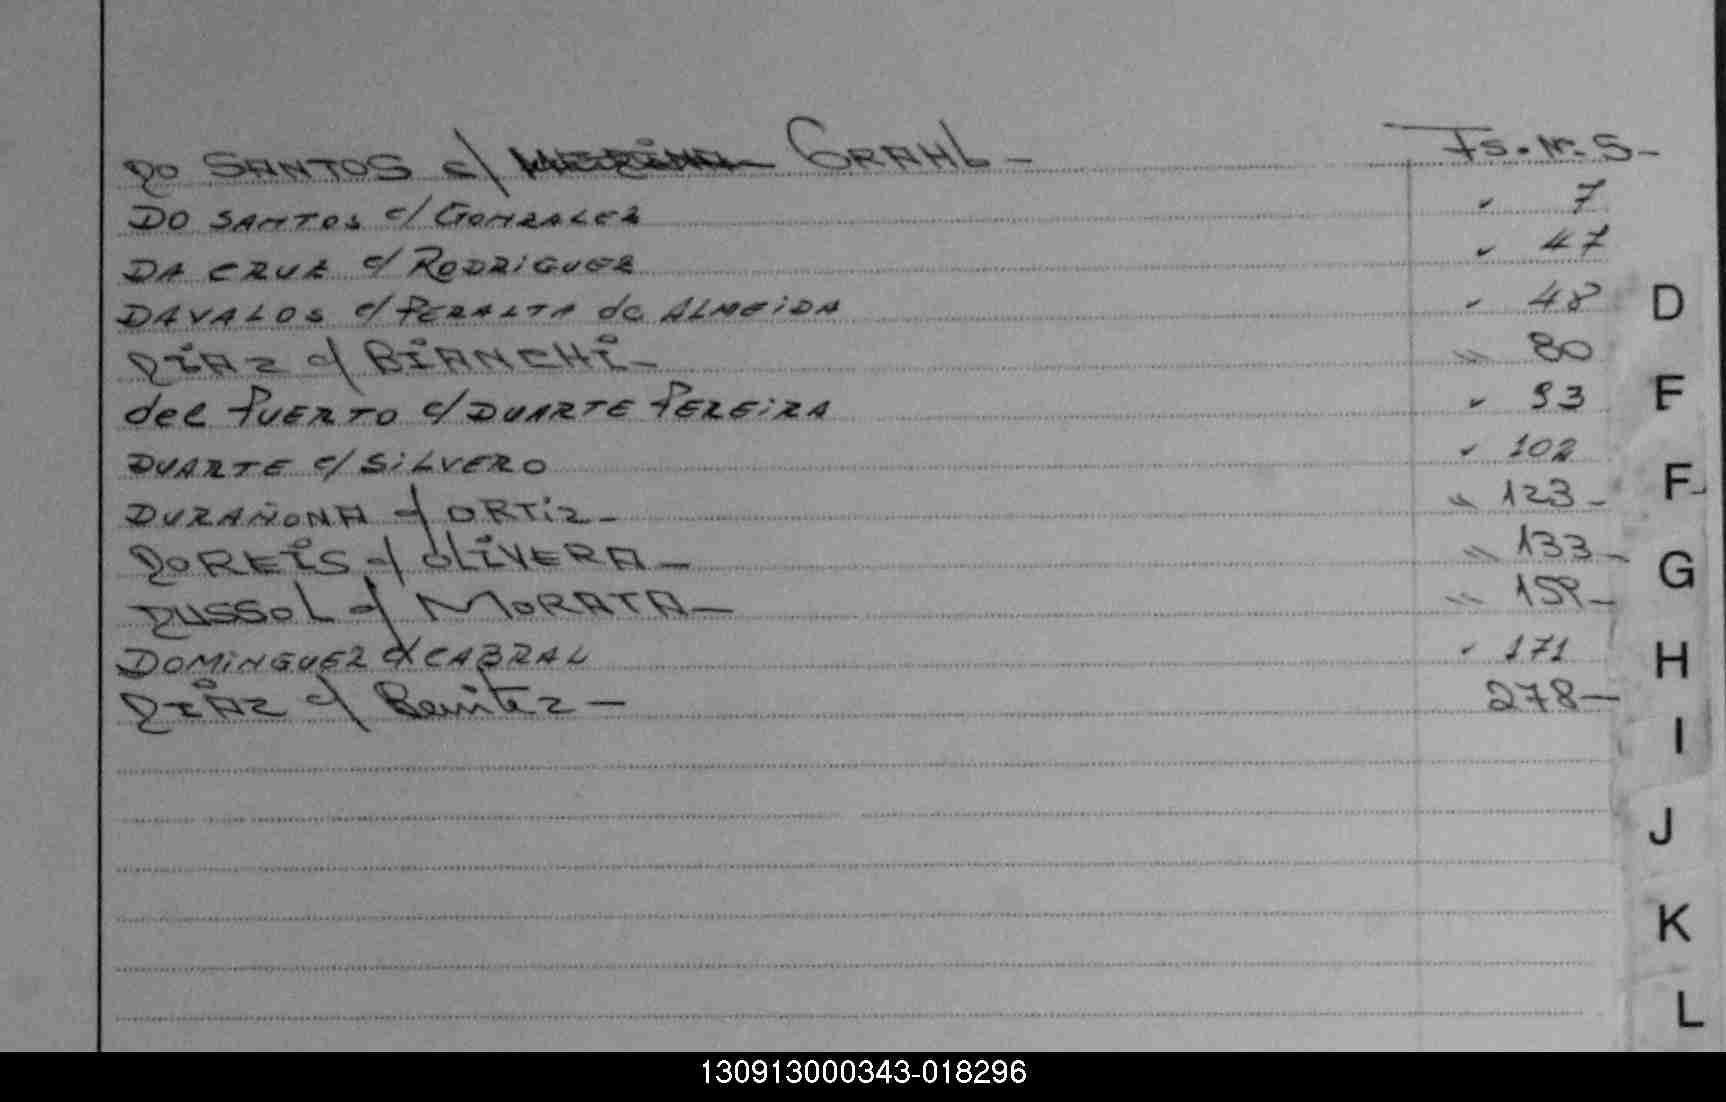 Do SANTOS c/ GRAHL - Fs. Nº. 5-
DO SANTOS c/ GONZALEZ " 7
DA CRUZ c/ RODRIGUEZ " 47
DAVALOS c/ PERALTA de ALMEIDA " 48
DiAz c/ BiANCHi - " 80
del PUERTO c/ DUARTE PEREiRA " 93
DUARTE c/ SiLVERO " 102
DURAÑONA c/ ORTiz - " 123-
DoREiS c/ OLiVERA - " 133-
DUSSOL c/ MORATA - " 159-
DOMiNGUEZ c/ CABRAL " 171
DiAz c/ Benitez - 278-
D
E
F
G
H
I
J
K
L
130913000343-018296